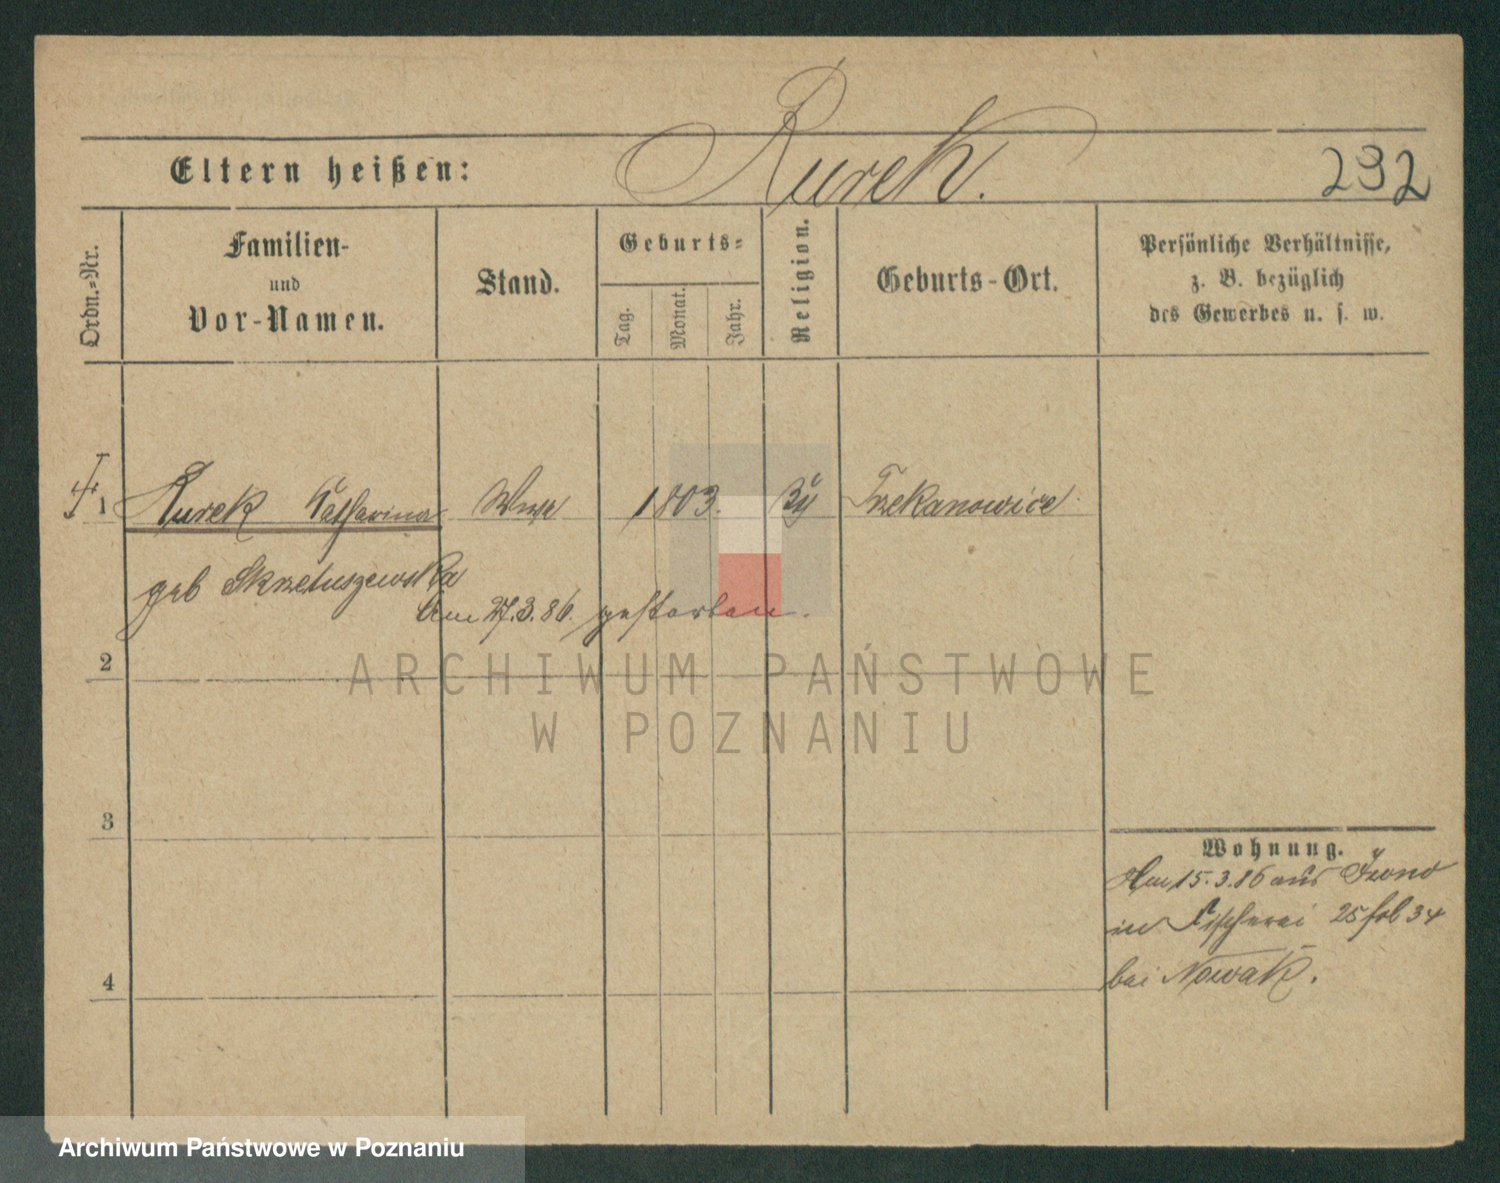 Rurek.
Eltern heißen:
232
Ordn.=Nr.
Familien-
und
Vor-Namen.
Stand.
Geburts=
Tag.
Monat.
Jahr.
Religion.
Geburts-Ort.
Persönliche Verhältnisse,
z. B. bezüglich
des Gewerbes u. s. w.
1 Rurek Catharina Wwe 1803.
geb Skrzetuszewska
Am 27.3.86. gestorben.
2
ARCHIWUM PAŃSTWOWE
W POZNANIU
3
Wohnung.
Am 15.3.86 aus
in Fischerei 25 fol 34
4
bei Nowak.
Archiwum Państwowe w Poznaniu